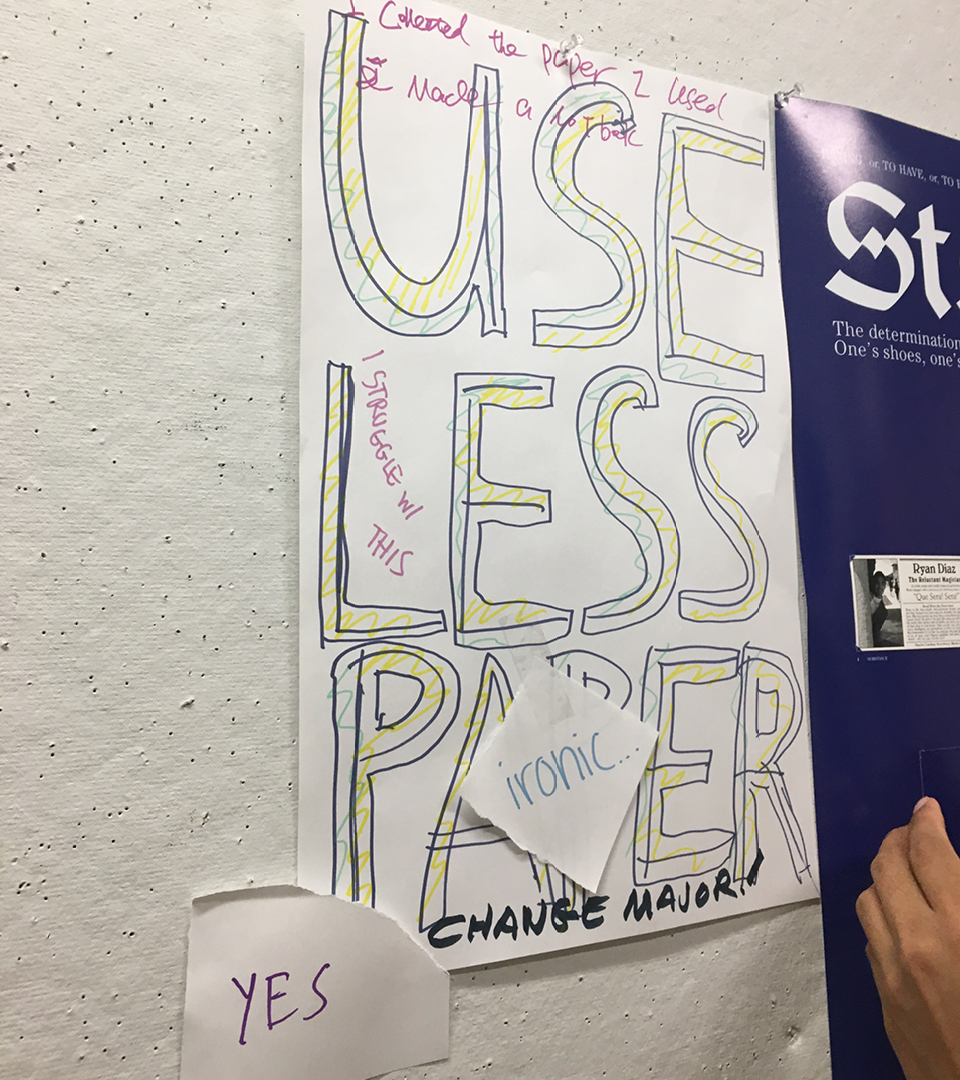 I Collected the paper I used
& Made a notbook
USE
LESS
PAPER
I STRUGGLE W/ THIS
ironic...
CHANGE MAJOR!
YES
or, TO HAVE, or, TO
St
The determination
One's shoes, one's
Ryan Diaz
The Reluctant Magician
"Que Sera! Sera!"